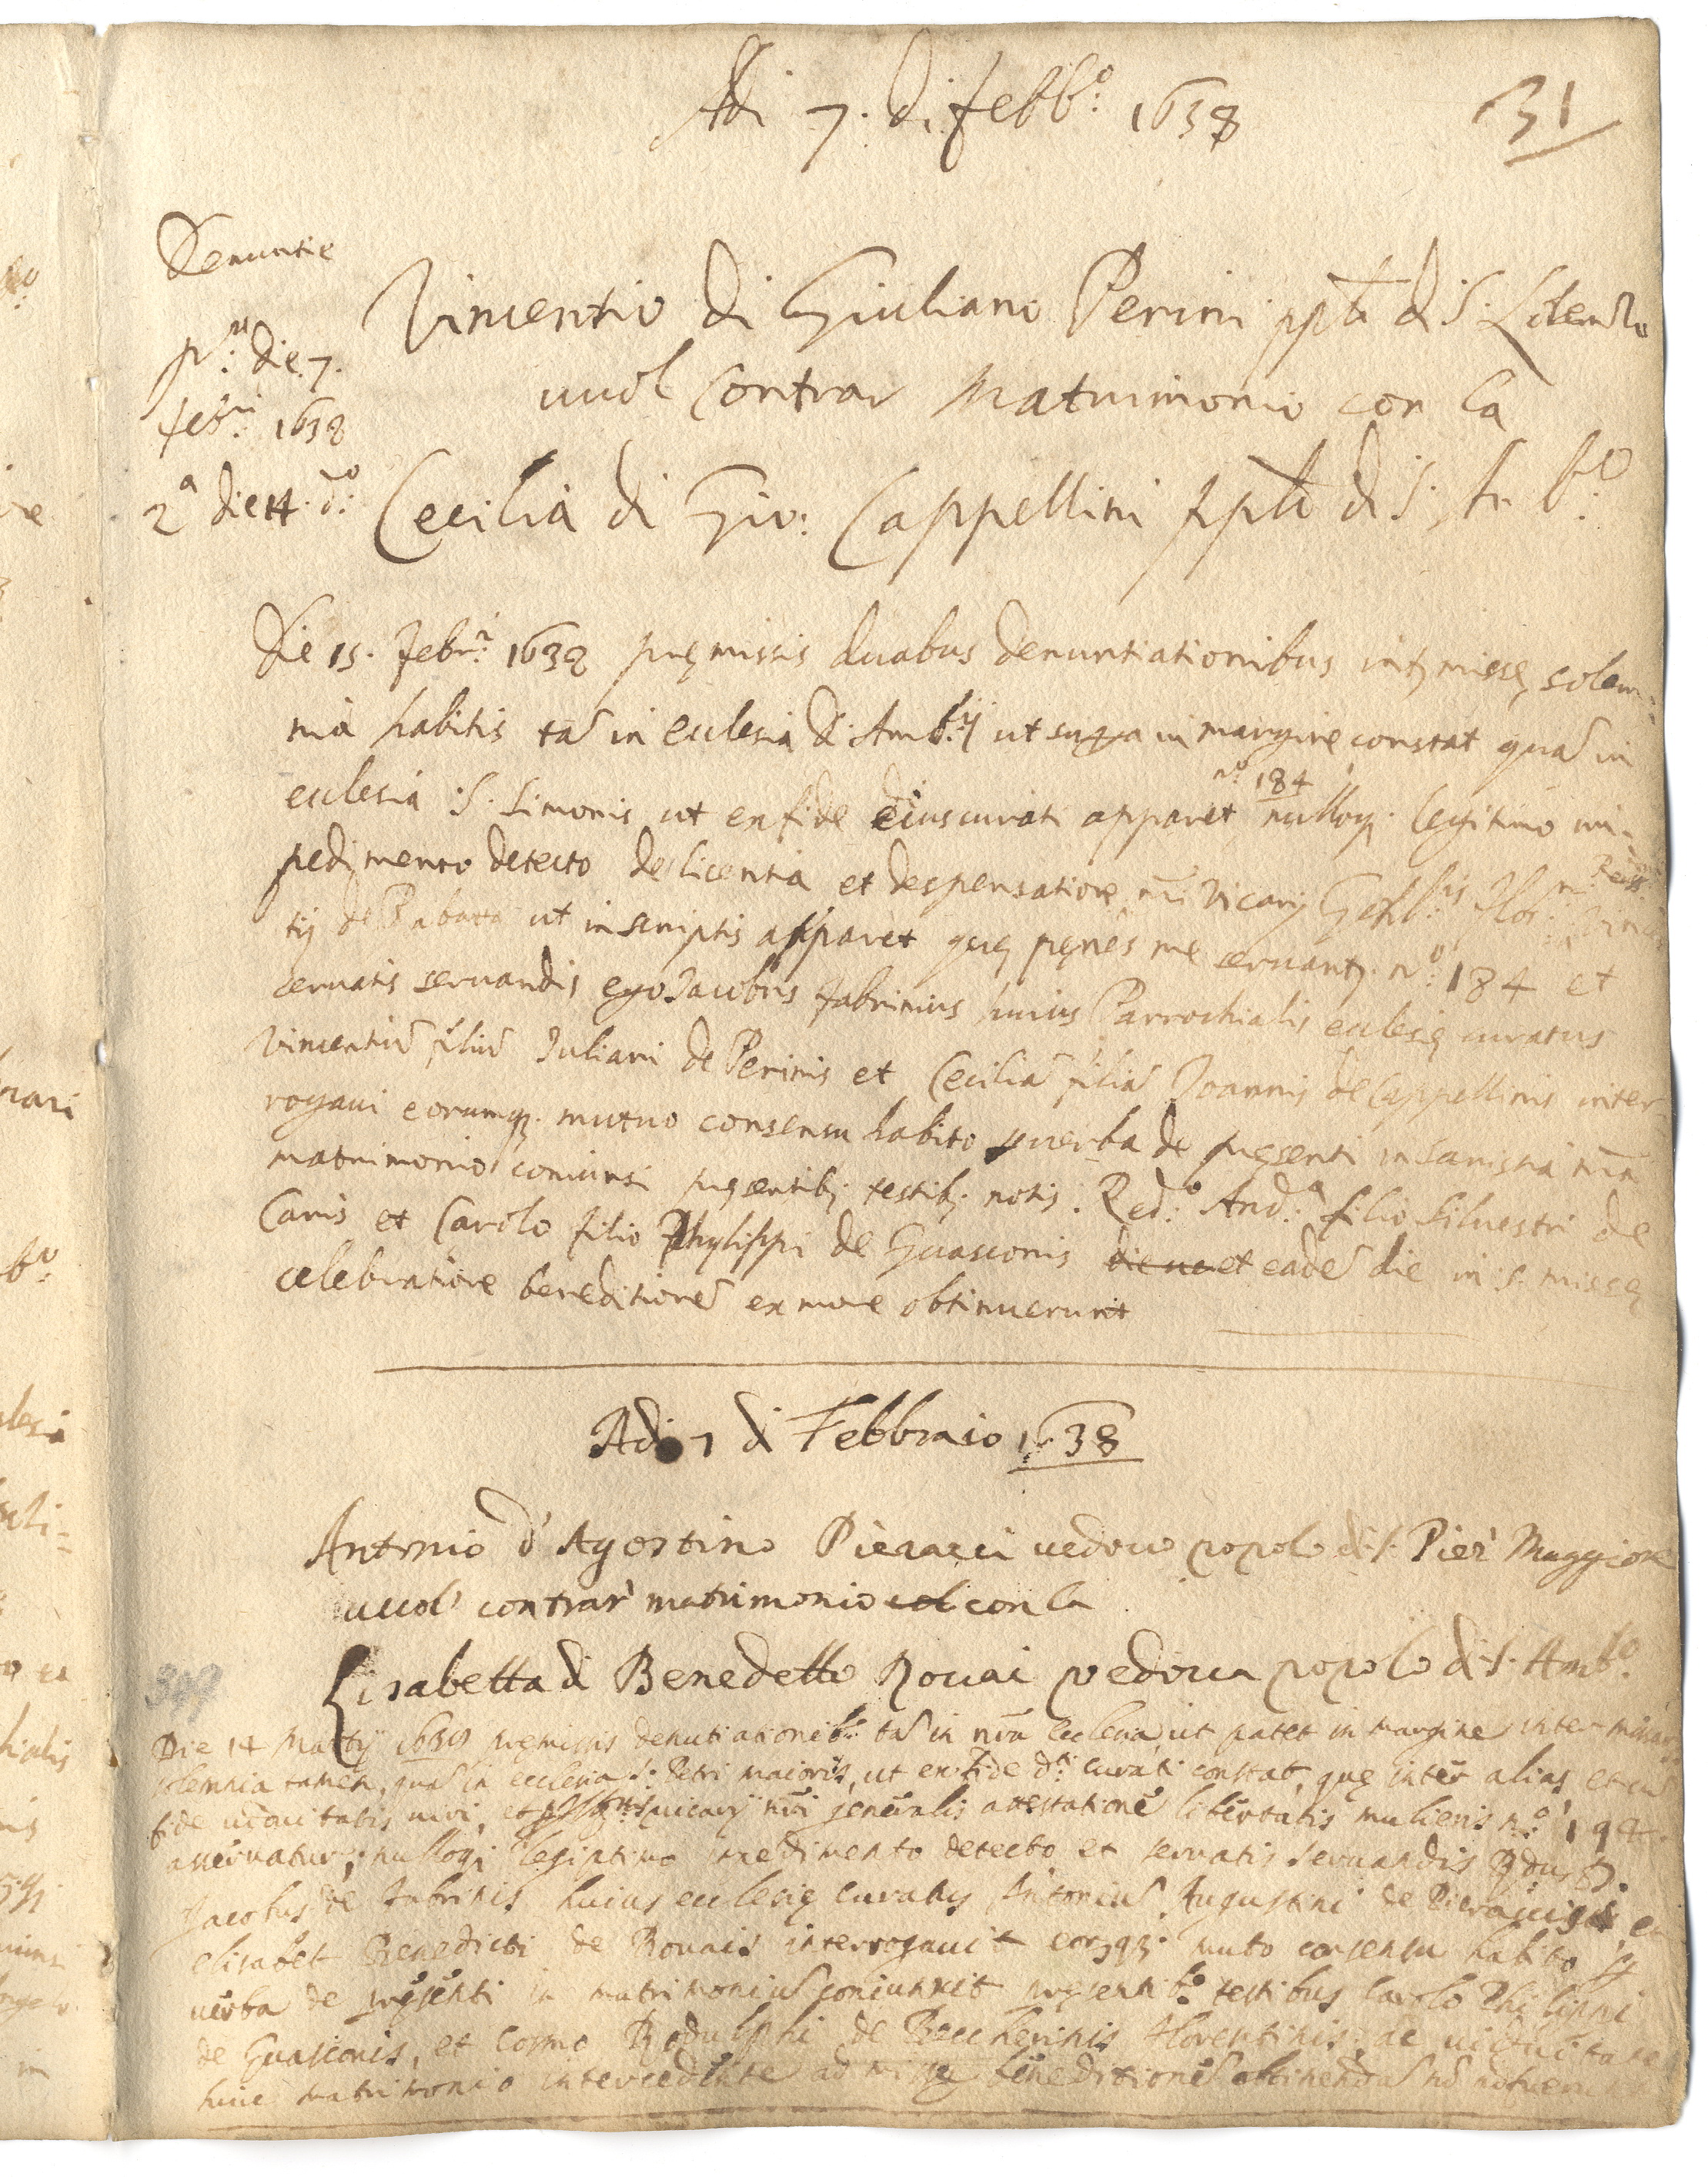 Adi 7. di febb.o 1638
31
Denuntie
p.a die 7.
feb.ri 1638
2a die 14. d.o
Vincentio di Giuliano Perini pplo di S.
vuol contrar Matrimonio con la
Cecilia di Gio: Cappellini pplo di S. Am.bo
Die 15. Febr.i 1638 pręmissis duabus denuntiationibus inter missę solem=
nia habitis tam in eclesia S. Amb.ij ut supra in margine constat quam in
eclesia S. Simonis ut ex fide eius curati apparet n.o 184 nulloq; legitimo im=
pedimento detecto de licentia et despensatione Vicarij
tij de Rabatta ut in scriptis apparet quę penes me servant.r n.o 184 et
servatis servandis ego Jacobus Fabrinius huius Parrochialis eclesię curatus
Vincentiu filiu Juliani de Perinis et Cecilia filia Joannis de Cappellinis inter
rogavi eorumq; mutuo consensu habito p verba de pręsenti in
matrimonio coniunsi pręsentib; testib; notis: Red.o And.a filio Silvestri de
Canis et Carolo filio Phylippi de Guasconis die et eade die in S. missę
celebratione beneditione ex more obtinuerunt
Adi 7 di Febbraio 1638
Antonio d'Agostino Pieracci vedovo popolo di S. Pier Maggiore
vuol contrar' matrimonio col con la
Lisabetta di Benedetto Rovai vedova popolo di S. Amb.o
349
Die 14 Martij 1638 pręmissis denutiationib: ta in nra ecclesia, ut patet in margine inter
solemnia tamen, qua in ecclesia S. Petri maioris, ut ex fide d.i curati constat, quę inter alias, et cu
fide viduitatis viri, et vicarij nri generalis attestatione libertatis mulieris n.o 194
asservatur, nulloq; legiptimo inpedimento detecto et servatis servandis
Jacobus de Fabrinis huius ecclesię curatus Antoniu Augustini de Pieraccis et
elisabet Benedicti de Rovais interrogavit eorq; muto consensu habito p
verba de pręsenti in matrimoniu coniunxit pręsentib: testibus Carolo Philippi
de Guasconis, et Cosmo Rodulphi de Beccherinis florentinis; de viduitate
huic matrimonio intercedente ad missę beneditione obtinenda no